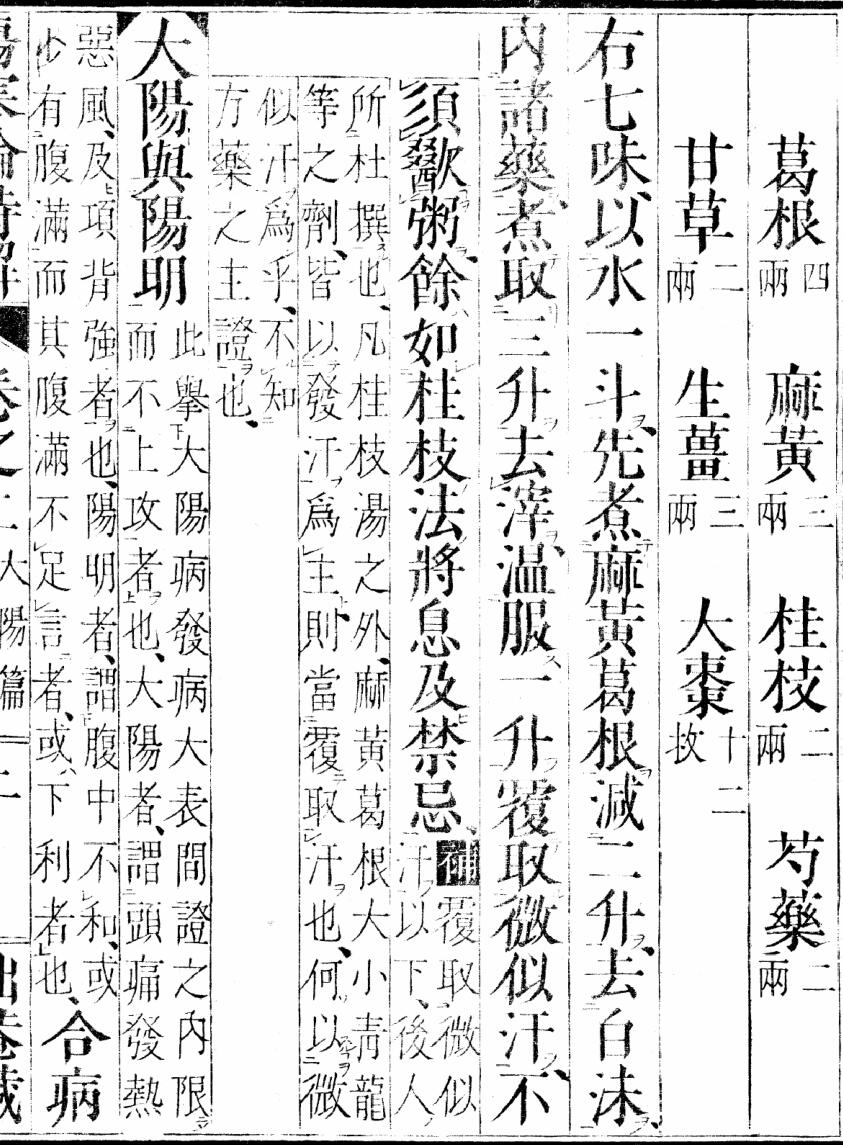 葛根四兩 麻黃三兩 桂枝二兩 芍藥二兩
甘草二兩 生薑三兩 大棗十二枚
右七味、以水一斗、先煮麻黃葛根、減二升、去白沫、
內諸藥、煮取三升、去滓、温服一升、覆取微似汗、不
須歠粥、餘如桂枝法將息及禁忌、補覆取微似
汗以下、後人
所杜撰也、凡桂枝湯之外、麻黃葛根大小青龍
等之劑、皆以發汗爲主、則當覆取汗也、何以微
似汗爲乎、不知
方藥之主證也、
大陽與陽明此擧大陽病發病大表間證之內限
而不上攻者也、大陽者、謂頭痛發熱
惡風、及項背強者也、陽明者、謂腹中不和、或
少有腹滿而其腹滿不足言者、或下利者也、合病
卷之二大陽篇 二